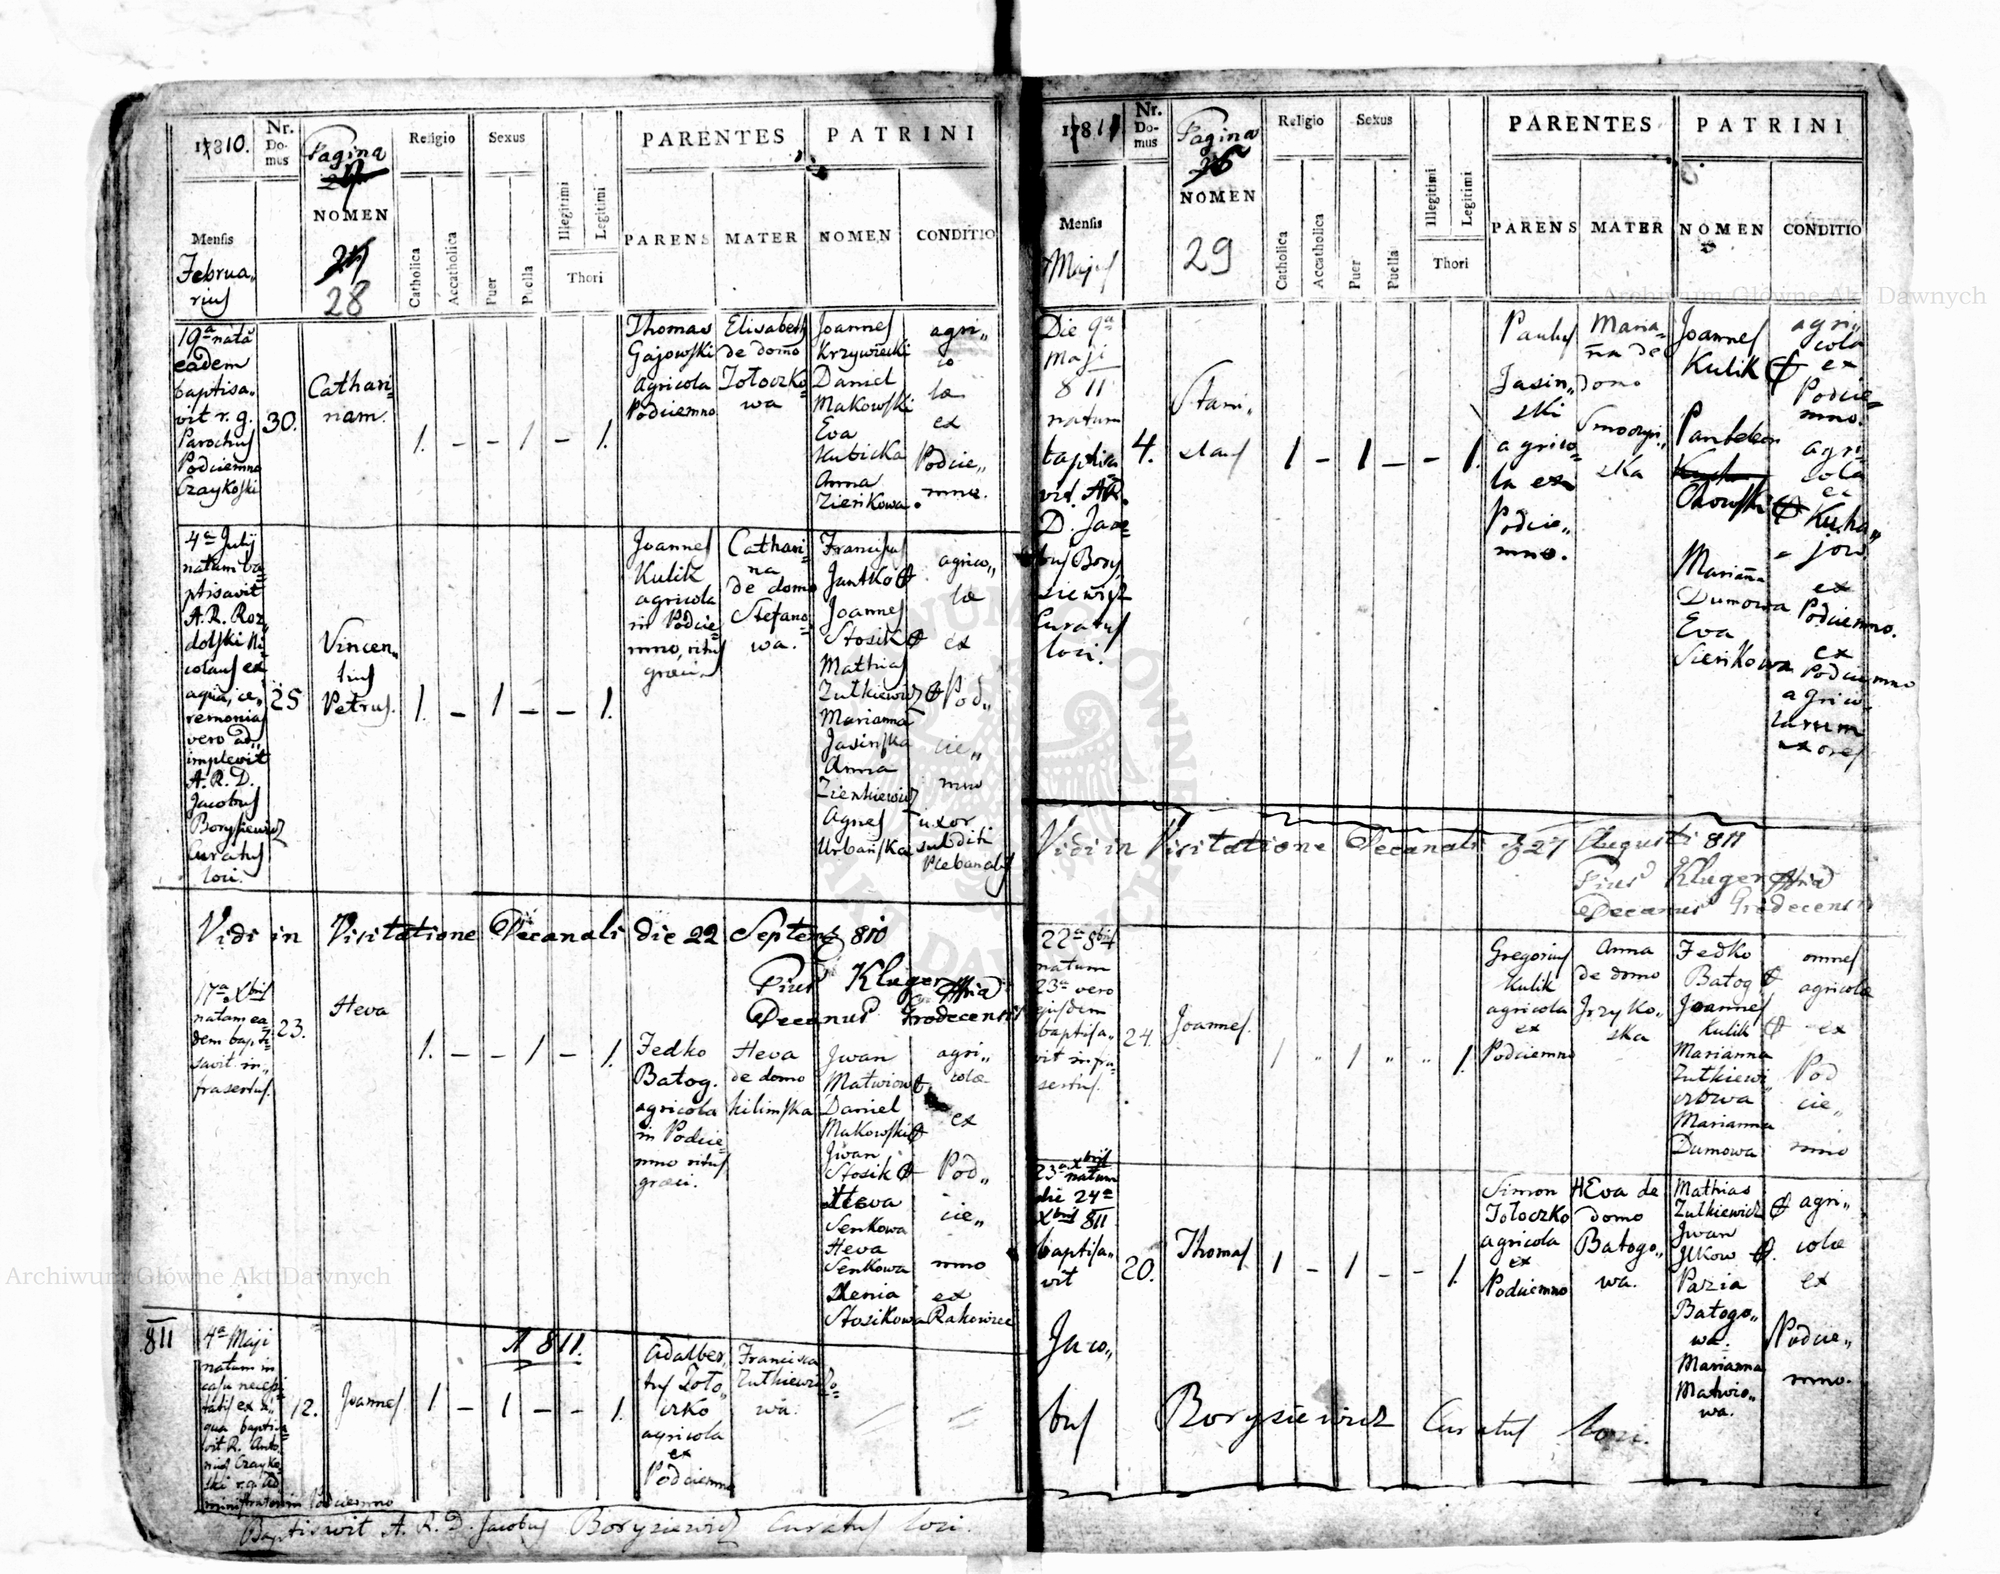 1810.
Nr. Domus
Pagina
NOMEN
28
Religio
Sexus
PARENTES
PATRINI
Mensis
Februarius
Catholica
Accatholica
Puer
Puella
Illegitimi
Legitimi
Thori
PARENS
MATER
NOMEN
CONDITIO
19a nata
eadem
baptisa„
vit r. g.
Parochus
Podciemno
Czaykoſki
30.
Cathari=
nam.
1. – – 1 – 1.
Thomas
Gajowſki
Agricola
Podciemno
Elisabeth
de domo
Toloczko
wa
Joannes
Daniel
Makowſki
Eva
Kubicka
Anna
Zienkowa.
agri„
co
læ
ex
Podcie„
mno.
4a Julij
natum ba=
ptisavit
A. R. Roz
dolſki Ni
colaus ex
aqua, ce„
remonias
vero ad„
implevit
A. R. D.
Jacobus
Borysiewicz
Curatus
loci.
25
Vincen„
tius
Petrus.
1. – 1 – – 1.
Joannes
Kulik
agricola
in Podcie=
mno, ritus
græci.
Cathari=
na
de domo
Stefano=
wa.
Joannes
Stosik
Mathias
Zutkiewicz
Marianna
Jasinſka
Anna
Zienkiewicz
Agnes
Urbańſka
agrico„
læ
ex
Pod„
cie„
mno
uxor
subditi
Plebanalis
Vidi in Visitatione Decanali die 22 Septem 810
Pius Kluger
Decanus Grodecensis
17a Xbris
natam ea
dem bapti=
savit in„
frasertus.
23.
Heva
1. – – 1 – 1.
Fedko
Batog.
agricola
in Podcie=
mno ritus
græci.
Heva
de domo
Kilimſka
Jwan
Matwiow
Daniel
Makowſki
Jwan
Stosik
Heva
Senkowa
Heva
Senkowa
Xenia
Stosikowa
agri„
colæ
ex
Pod„
cie„
mno
ex
Rakowiec
811
A 811.
4a Maji
natum in
casu necessi
tatis ex a„
qua baptisa
vit R. Anto
nius Czayko
ſki r. g. Ad
ministrator in Podciemno
12.
Joannes
1 – 1 – – 1.
Adalber„
tus Toło„
czko
agricola
ex
Podciemno
Francisca
Zutkiewiczo=
wa.
Baptisavit A. R. D. Jacobus Borysiewicz Curatus loci.
1811
Nr. Domus
Pagina
NOMEN
29
Religio
Sexus
PARENTES
PATRINI
Mensis
Majus
Catholica
Accatholica
Puer
Puella
Illegitimi
Legitimi
Thori
PARENS
MATER
NOMEN
CONDITIO
Die 9a
Maji
811
natum
baptisa
vit A.R.
D. Jaco=
bus Bory
siewicz
Curatus
loci.
4.
Stani„
slaus
1 – 1 – – 1.
Paulus
Jasin„
ski
agrico=
la ex
Podcie„
mno.
Maria=
na de
domo
Smoczyń„
ska
Joannes
Kulik
Pantaleon
Marianna
Dumowa
Eva
Sienkowa
agri
cola
ex
Podcie=
mno.
agri
cola
ex
Kuha„
jow.
ex
Podciemno.
ex
Podciemno
agrico„
larum
uxores
Vidi in Visitatione Decanali d 27 Augusti 811
Pius Kluger
Decanus Grodecensis
22a 8bris
natum
23a vero
ejusdem
baptisa„
vit infra„
sertus.
24.
Joannes.
1 „ 1 „ „ 1.
Gregorius
Kulik
agricola
ex
Podciemno
Anna
de domo
Jrzyko„
ska
Fedko
Batog
Joannes
Kulik
Marianna
Zutkiewi„
czowa
Marianna
Dumowa
omnes
agricolæ
ex
Pod
cie„
mno
23a Xbris
natum
die 24a
Xbris 811
baptisa„
vit
20.
Thomas
1 – 1 – – 1.
Simon
Toloczko
agricola
ex
Podciemno
HEva de
domo
Batogo„
wa.
Mathias
Zutkiewicz
Jwan
Jlkow
Pazia
Batogo„
wa.
Marianna
Matwio„
wa.
agri„
colæ
ex
Podcie„
mno.
Jaco„
bus Borysiewicz Curatus loci.
Archiwum Główne Akt Dawnych
Archiwum Główne Akt Dawnych